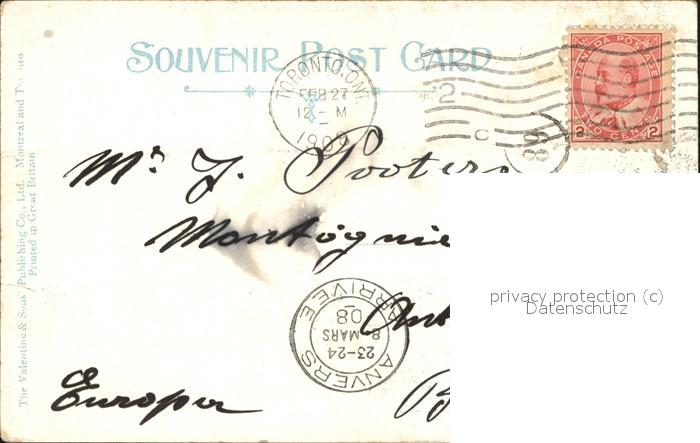 SOUVENIR POST CARD
TORONTO, ONT.
FEB 27
12 - M
190
2
C
CANADA POSTAGE
2 TWO CENTS 2
Mr J. Pooters
privacy protection (c)
Datenschutz
ANVERS
23-24
8 MARS
08
ARRIVEE
Ant
Europa
B
The Valentine & Sons Publishing Co., Ltd. Montreal and Toronto
Printed in Great Britain